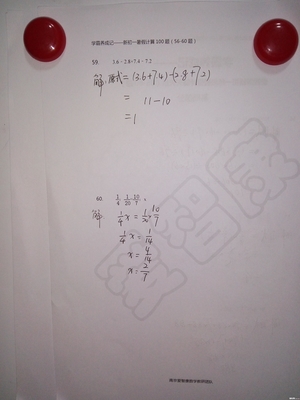 学霸养成记——新初一暑假计算 100 题（56-60 题）
59. 3.6 - 2.8+7.4 - 7.2
解:原式= (3.6+7.4)-(2.8+7.2)
= 11-10
=1
60. 1/4 1/20 10/7 。
解
1/4 x = 1/20 × 10/7
1/4 x = 1/14
x = 4/14
x = 2/7